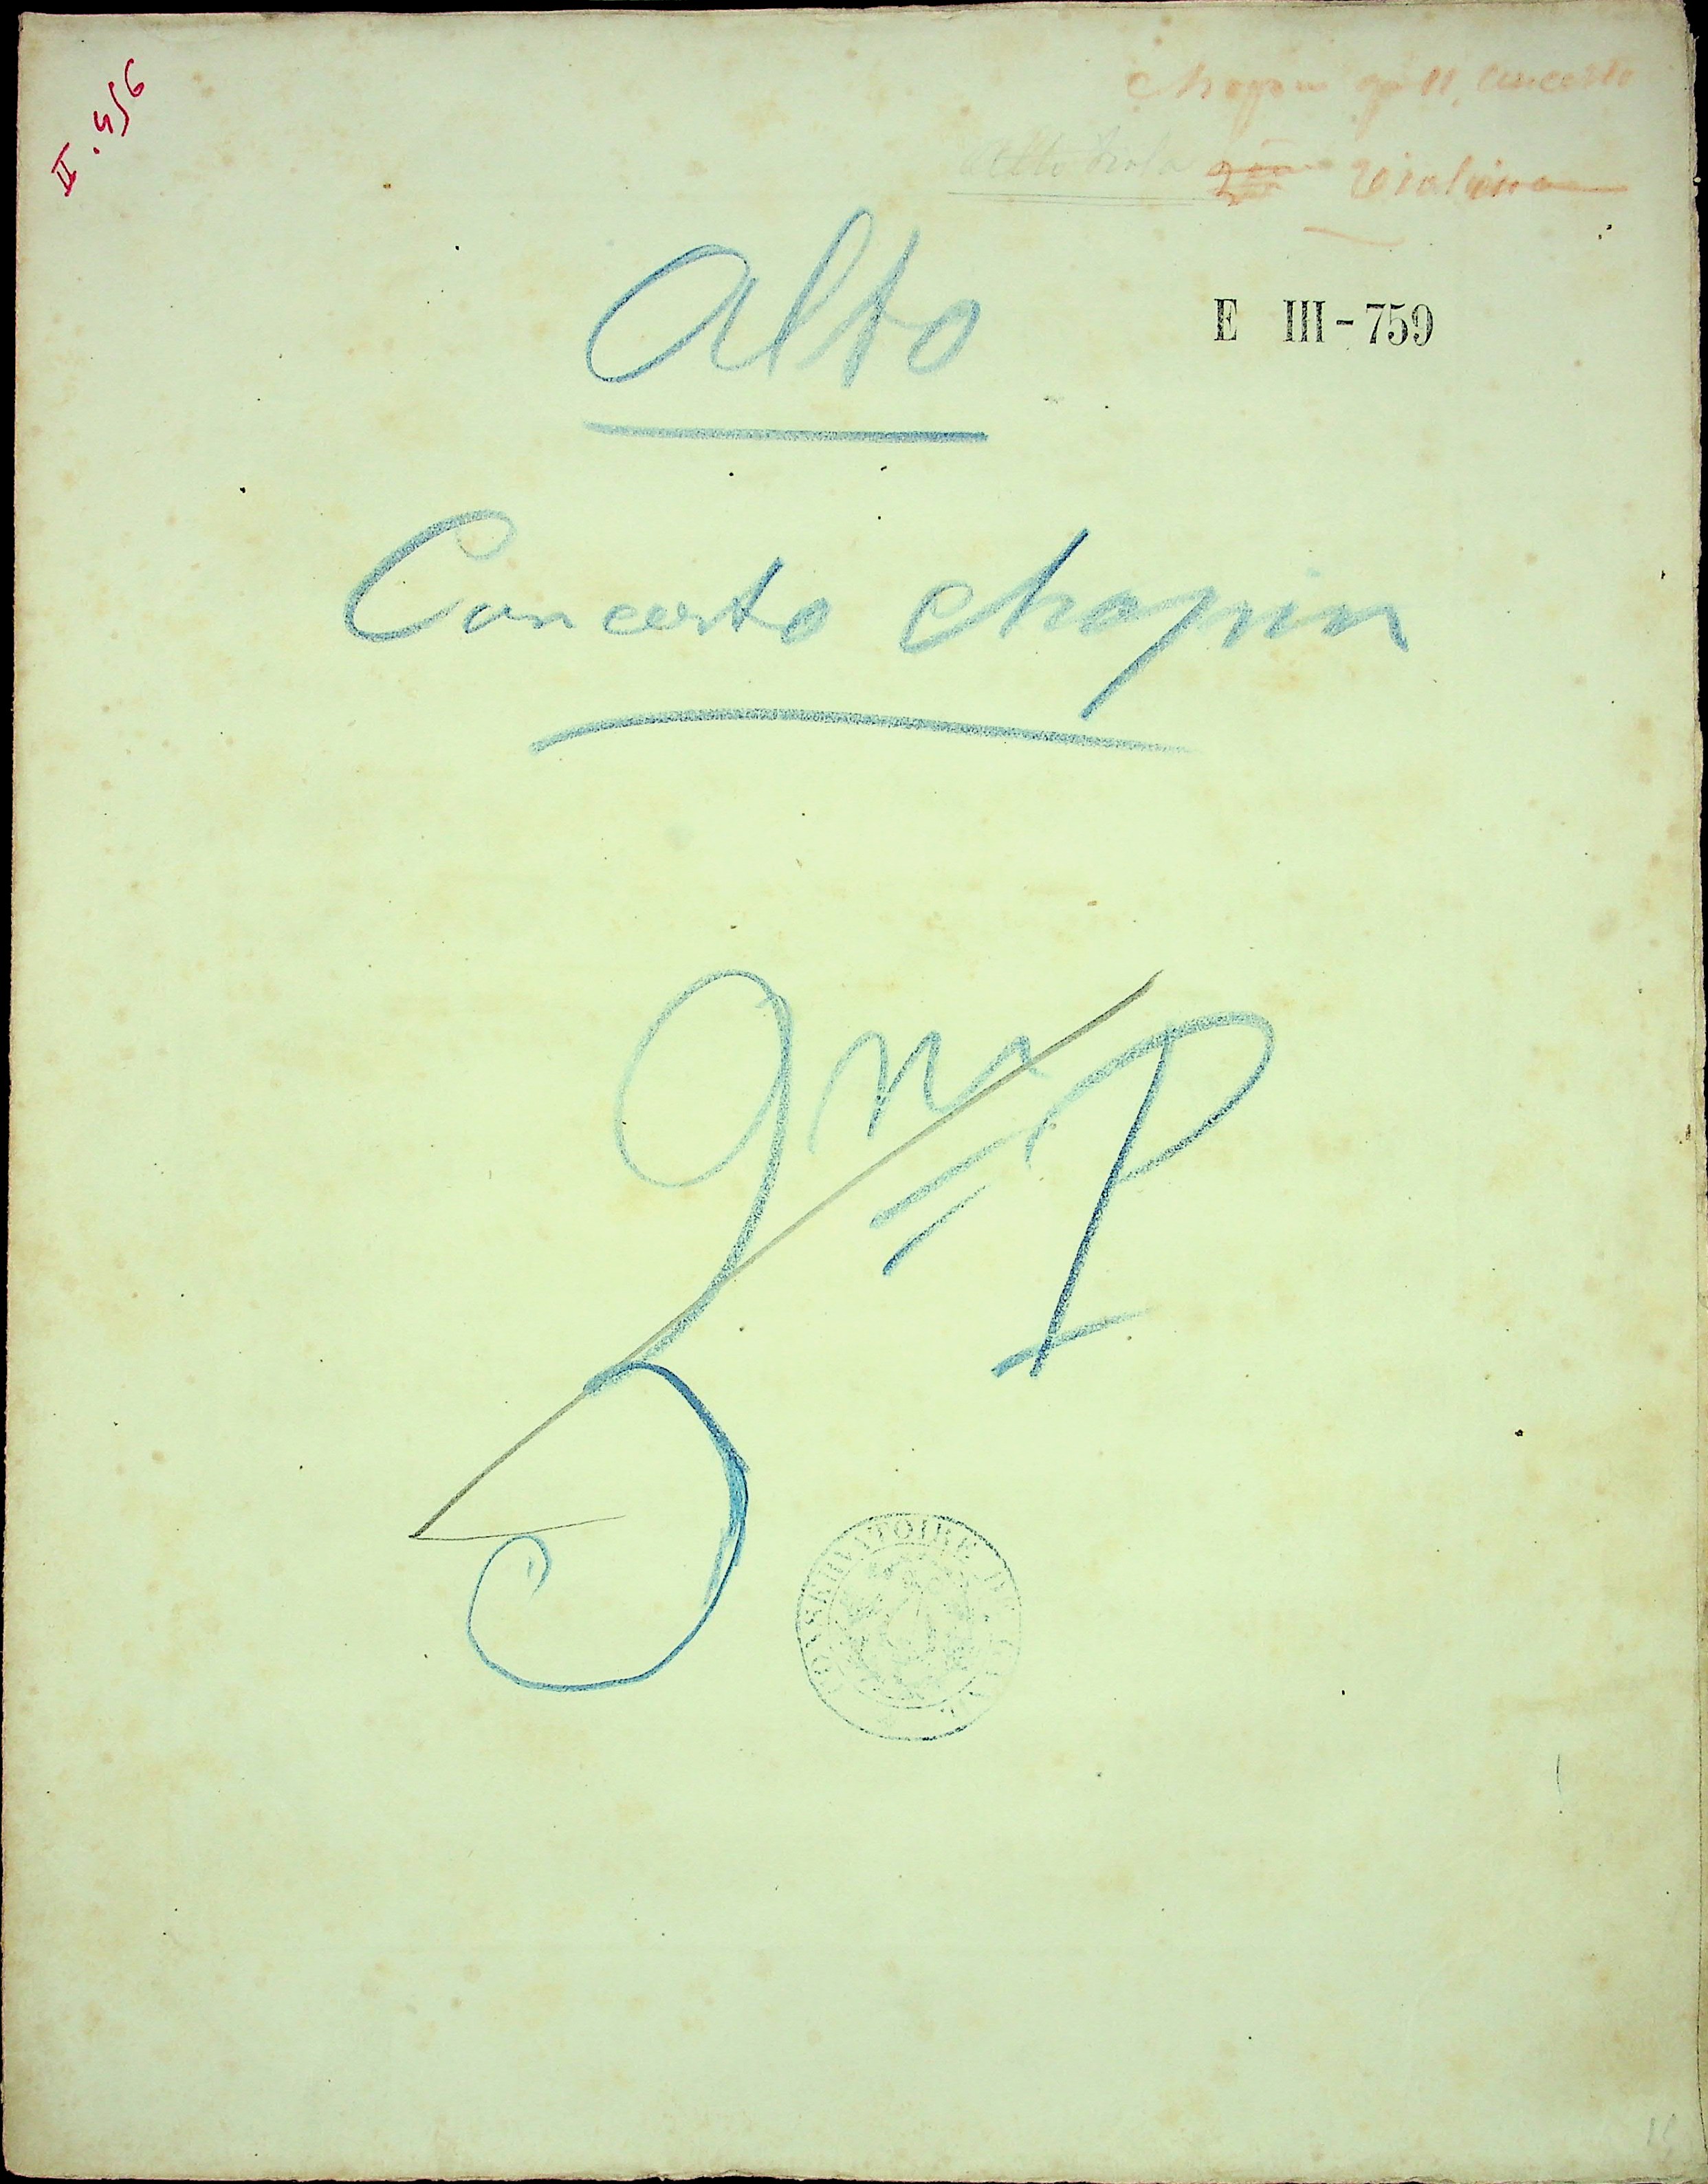 II. 456
Chopin op 11. Concerto
Alto Viola 2me Violino
Alto
E III-759
Concerto Chopin
CONSERVATOIRE DE